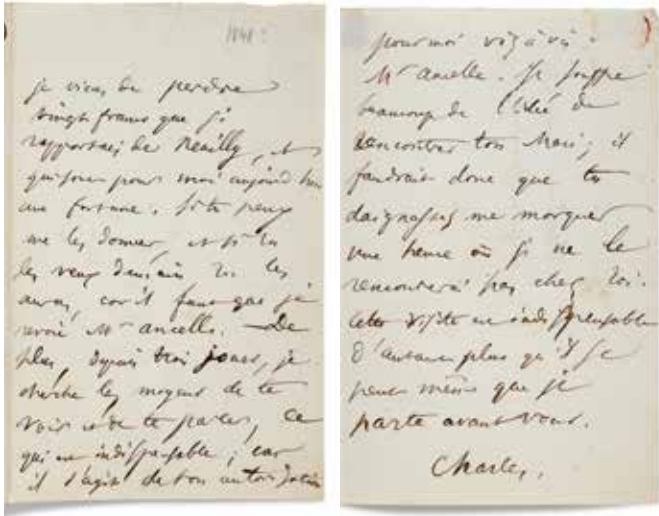 1848 ?
je viens de perdre
vingt francs que je
rapportais de Neuilly, et
qui sont pour moi aujourd'hui
une fortune. Si tu peux
me les donner, et si tu
les veux demain tu les
auras, car il faut que je
revoie Mr ancelle. — De
plus, depuis trois jours, je
cherche les moyens de te
voir et de te parler, ce
qui est indispensable ; car
il s'agit de ton autorisation
pour moi vis à vis
Mr ancelle. Je souffre
beaucoup de l'idée de
rencontrer ton mari ; il
faudrait donc que tu
daignasses me marquer
une heure où je ne le
rencontrerai pas chez toi.
Cette visite est indispensable
d'autant plus qu'il se
peut même que je
parte avant vous.
Charles.